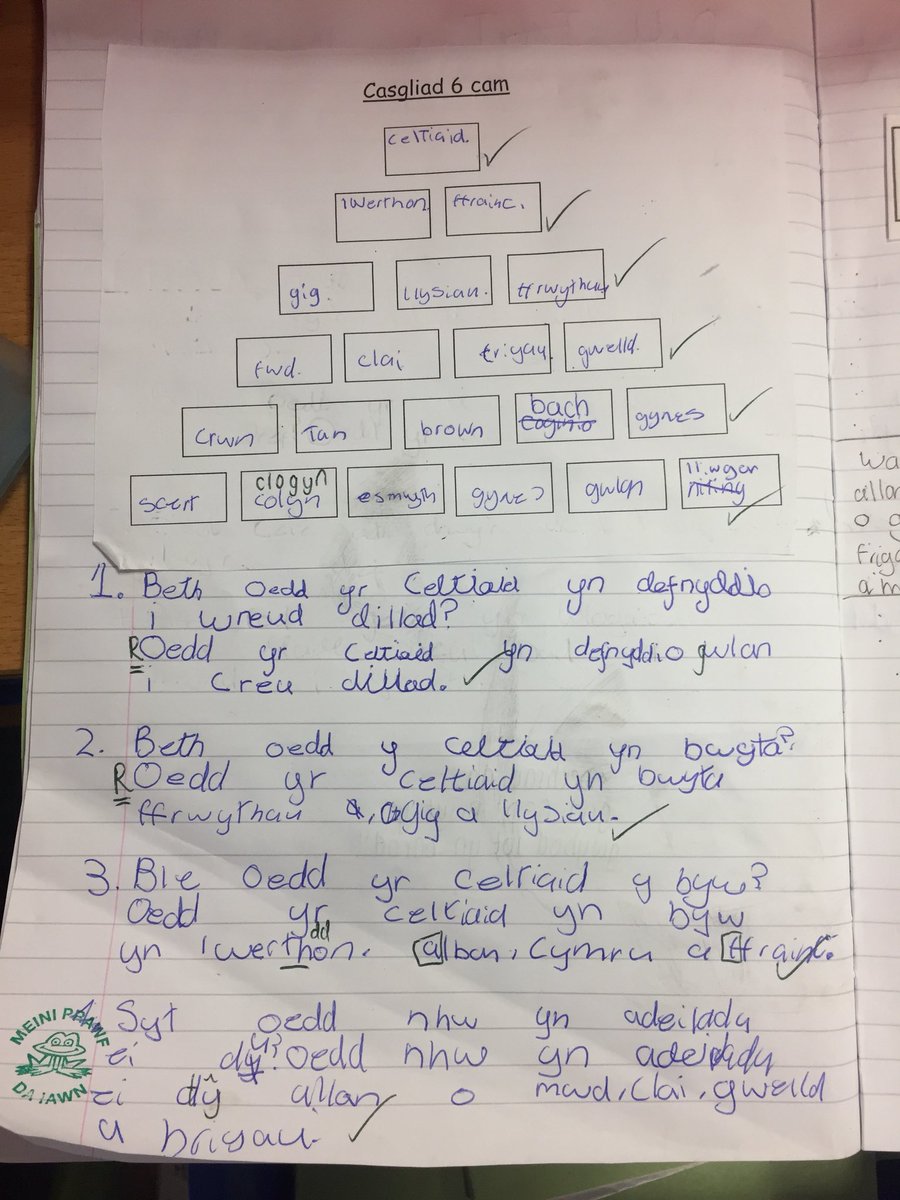 Casgliad 6 cam
Celtiaid.
Iwerthon ffrainc.
gig. llysian. ffrwythau
fwd. clai friyau gwelld.
crwn Tan brown bach coginio gynes
scert clogyn colyn esmwyth gynes gwlan lliwgar niting
1. Beth oedd yr Celtiaid yn defnyddio
i wneud dillad?
ROedd yr Celtiaid yn defnyddio gwlan
i creu dillad.
2. Beth oedd y celtiaid yn bwyta?
ROedd yr celtiaid yn bwyta
ffrwythau a, gig a llysian.
3. Ble oedd yr celtiaid y byw?
Oedd yr celtiaid yn byw
dd
yn Iwerthon. alban, Cymru a ffrainc.
4. Syt oedd nhw yn adeilady
ei dŷ? oedd nhw yn adeilady
ei dŷ allan o mwd, clai, gwelld
a briyau.
MEINI PRAWF
DA IAWN
wa
allan
o g
friga
a m